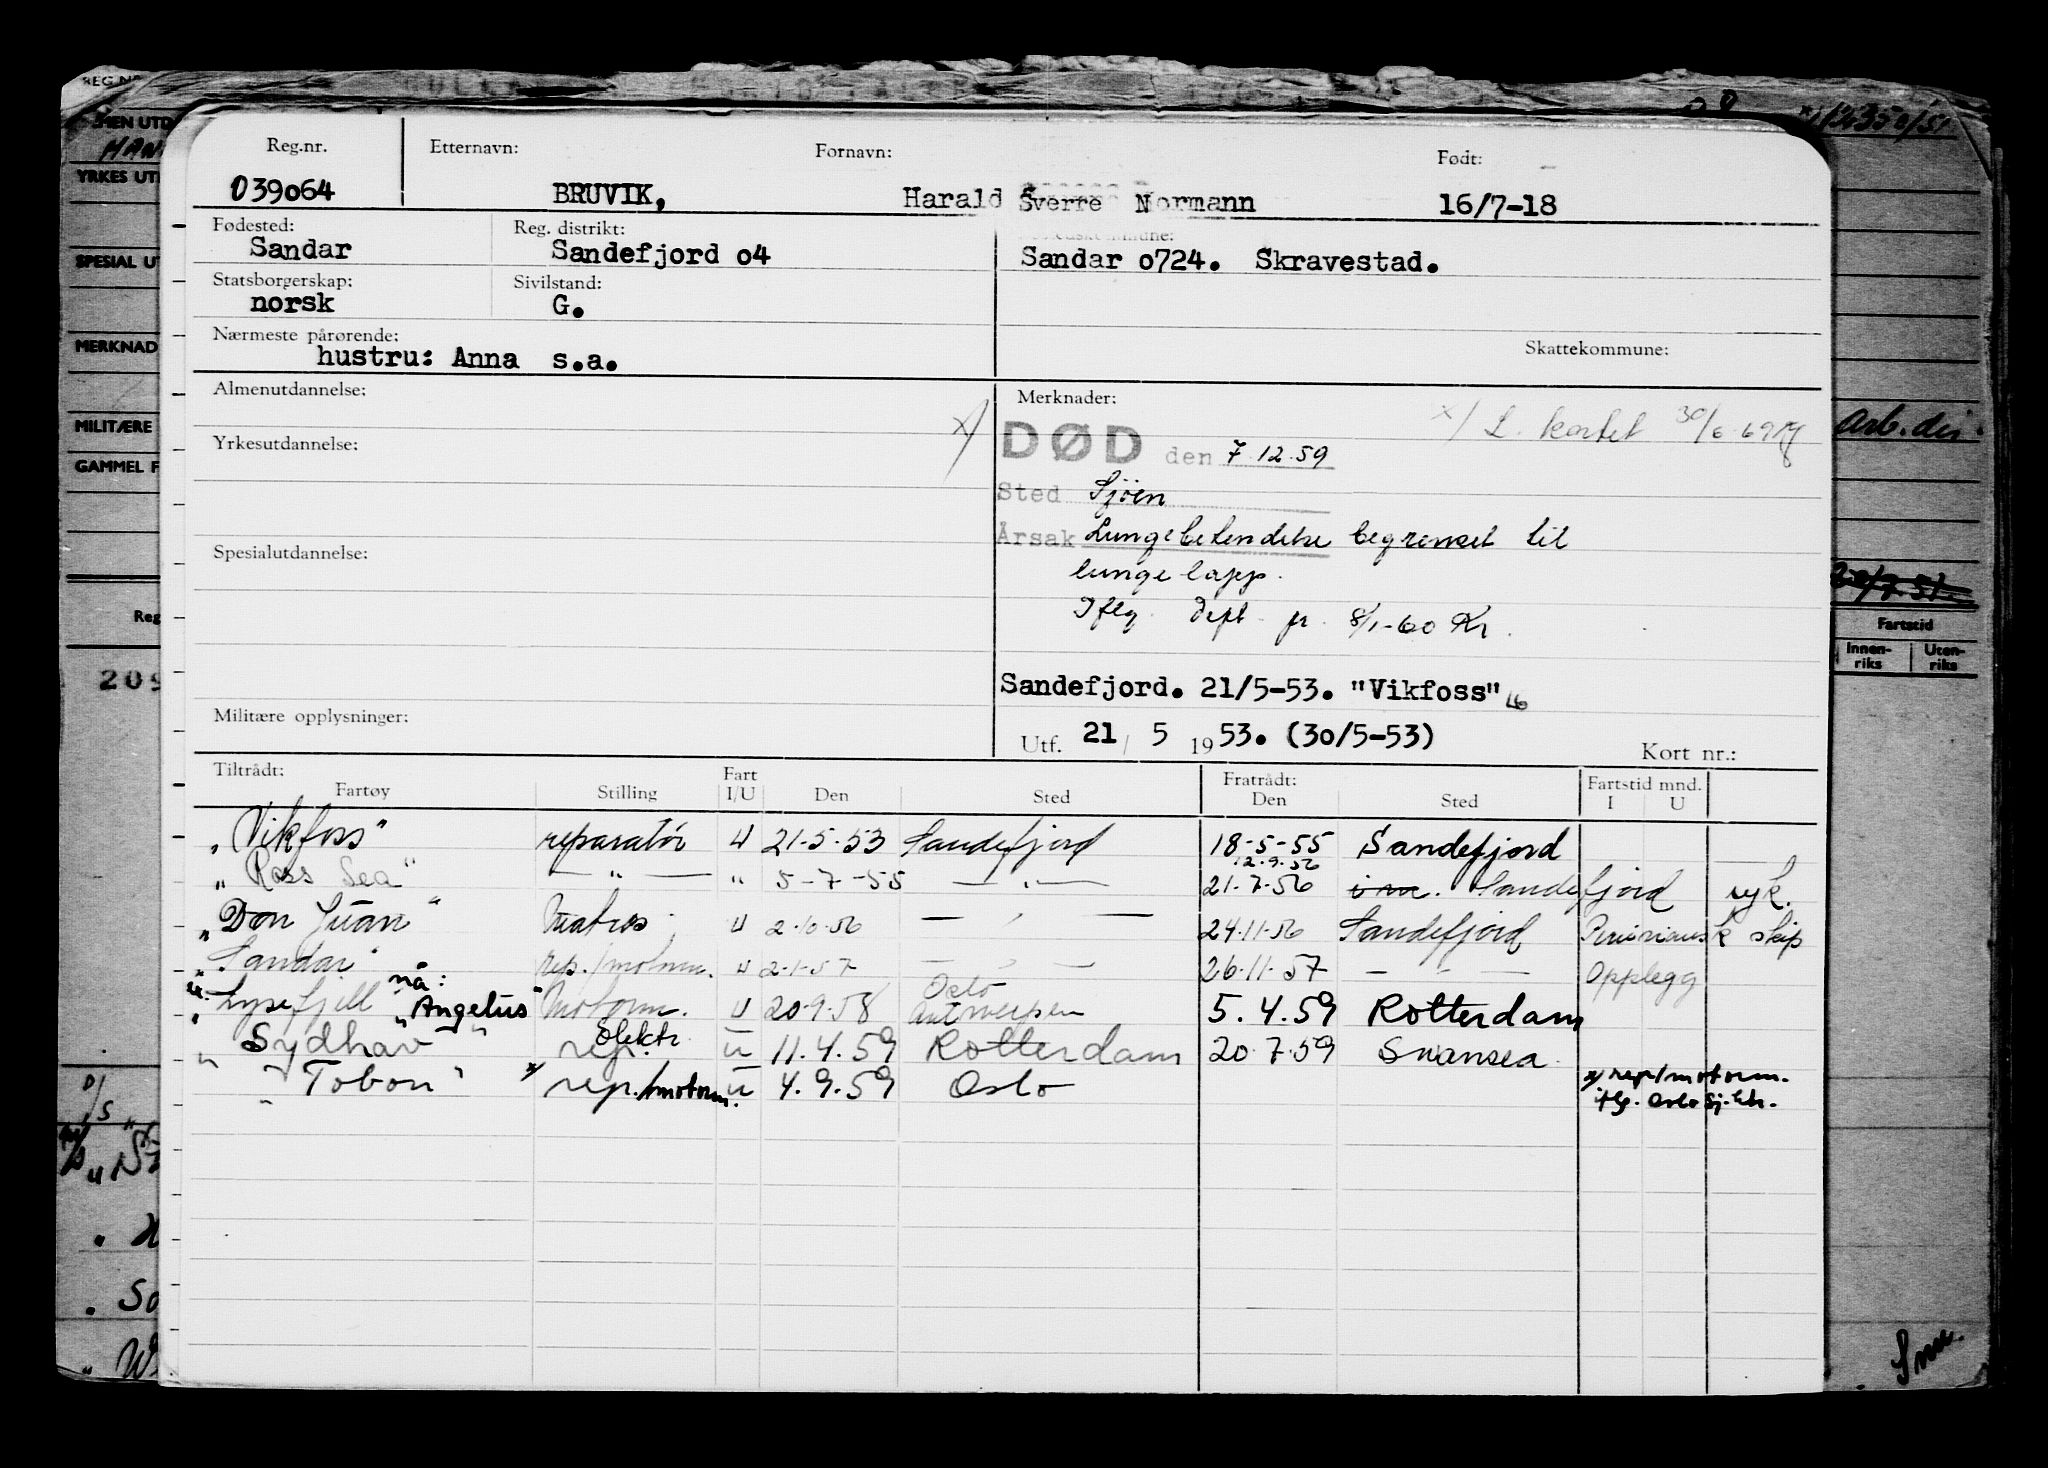 Reg.nr. Etternavn: Fornavn: Født:
039064 BRUVIK, Harald Sverre Normann 16/7-18
Fødested: Reg. distrikt:
Sandar Sandefjord 04 Sandar 0724. Skravestad.
Statsborgerskap: Sivilstand:
norsk G.
Nærmeste pårørende: Skattekommune:
hustru: Anna s.a.
Almenutdannelse: Merknader:
x/ DØD den 7.12.59 x/ L. kortet 30/6-69
Yrkesutdannelse:
Sted Sjøen
Årsak Lungebetendelse begrenset til
Spesialutdannelse:
lungelapp.
Iflg. Dept. pr. 8/1-60 Kr.
Sandefjord. 21/5-53. "Vikfoss"
Militære opplysninger:
Utf. 21/5 1953. (30/5-53)
Kort nr.:
Tiltrådt: Fart Fratrådt: Fartstid mnd.
Fartøy Stilling I/U Den Sted Den Sted I U
"Vikfoss" reparatør U 21-5-53 Sandefjord 18-5-55 Sandefjord
12.9.56
"Ross Sea" — " — " 5-7-55 — " — 21-7-56 Sandefjord syk.
"Don Juan" Matros U 2-10-56 — " — 24-11-56 Sandefjord Peruviansk skip
"Sandar" rep./motorm. U 2-1-57 — " — 26-11-57 — " — Opplegg
nå: Oslo
"Lysefjell" "Angelus" Motorm. U 20-9-58 Antwerpen 5.4.59 Rotterdam
elektr.
"Sydhav" rep. U 11.4.59 Rotterdam 20.7.59 Swansea
"Tobon" x/ rep./motorm. U 4.9.59 Oslo x/ rep/motorm.
iflg. Oslo Sj.ktr.
REG.NR.
MEN UTD
YRKES UT
SPESIAL UT
MERKNAD
MILITÆRE
GAMMEL F
Reg
209
arb.
Fartstid
Innen-riks Uten-riks